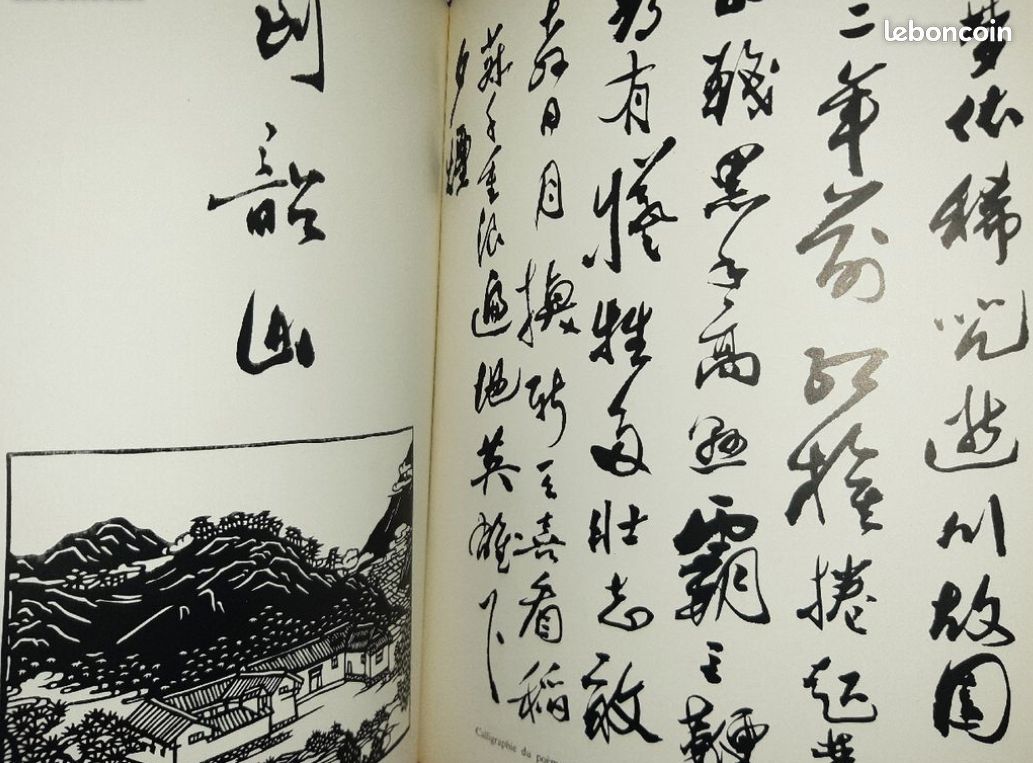 leboncoin
到韶山
夢依稀咒逝川故園
二年前紅旗捲起農
奴戟黑手高懸霸主鞭
為有犧牲多壯志敢
教日月換新天喜看稻
菽千重浪遍地英雄下
夕煙
Calligraphie du poème